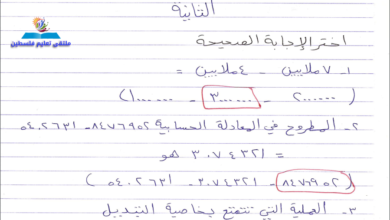 الثانية
ملتقى تعليم فلسطين
اختر الإجابة الصحيحة
١- ٧ ملايين - ٤ ملايين =
( ٢٠٠٠٠٠٠ - ٣٠٠٠٠٠٠ - ١٠٠٠٠٠٠ )
٢- المطروح في المعادلة الحسابية ٨٤٧٦٩٥٢ - ٥٤٠٢٦٣١
= ٣٠٧٤٣٢١ هو
( ٨٤٧٦٩٥٢ - ٣٠٧٤٣٢١ - ٥٤٠٢٦٣١ )
٣- العملية التي تتمتع بخاصية التبديل